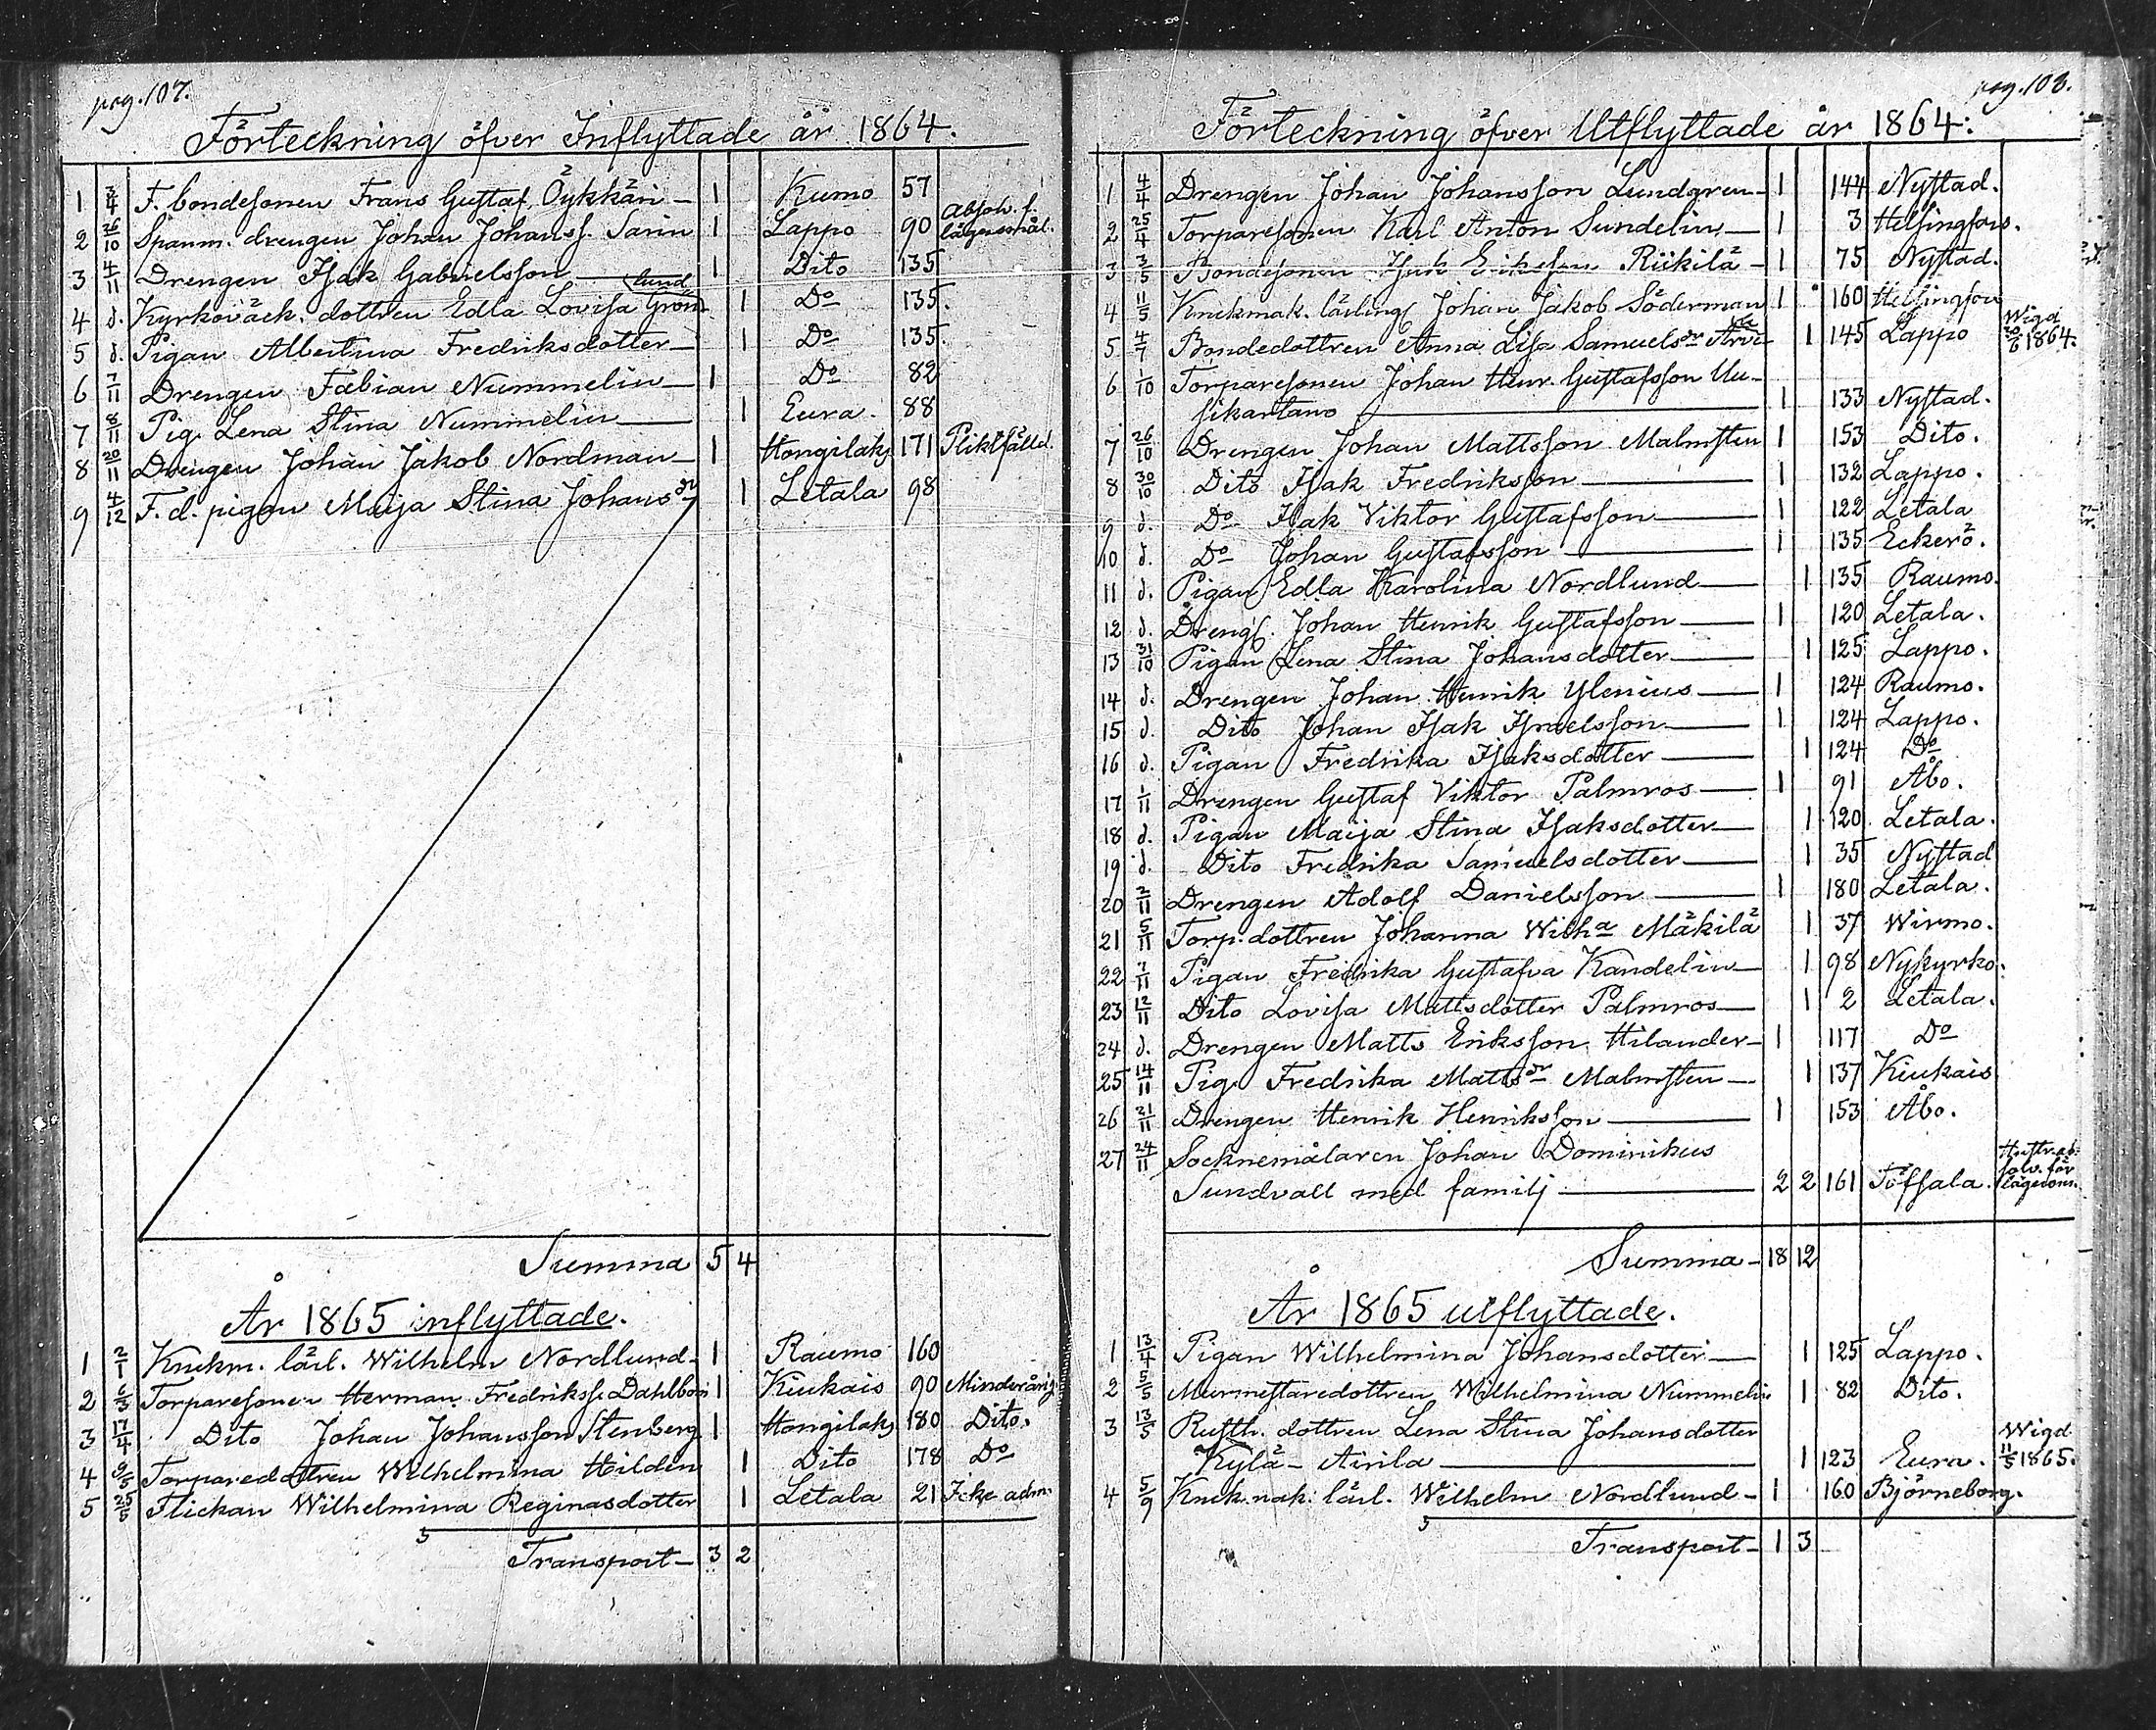 pag. 107.
Förteckning öfver Inflyttade år 1864.
1 3/4 F. bondesonen Frans Gustaf Öykkäri — 1 Kumo 57
2 26/10 Spanm. drengen Johan Johanss. Sarin 1 Lappo 90 Absolv. f. lägersmål.
3 4/11 Drengen Isak Gabrielsson — 1 Dito 135
4 d. Kyrkoväck. dottren Edla Lovisa Grönlund 1 Do 135.
5 d. Pigan Albertina Fredriksdotter — 1 Do 135.
6 7/11 Drengen Fabian Nummelin — 1 Do 82
7 8/11 Pig. Lena Stina Nummelin — 1 Eura. 88
8 20/11 Drengen Johan Jakob Nordman — 1 Hongilaks 171 Pliktfälld.
9 4/12 F. d. pigan Maija Stina Johansdr 1 Letala 98
Summa 5 4
År 1865 inflyttade.
1 2/1 Knekm. lärl. Wilhelm Nordlund — 1 Raumo 160
2 6/3 Torparesonen Herman Fredrikss. Dahlbom 1 Kiukais 90 Minderårig
3 17/4 Dito Johan Johansson Stenberg 1 Hongilaks 180 Dito.
4 9/5 Torparedottren Wilhelmina Hilden 1 Dito 178 Do
5 25/5 Flickan Wilhelmina Reginasdotter 1 Letala 21 Icke adm.
Transport — 3 2
pag. 108.
Förteckning öfver Utflyttade år 1864:
1 4/4 Drengen Johan Johansson Lundgren — 1 144 Nystad.
2 25/4 Torparesonen Karl Anton Sundelin — 1 3 Helsingfors.
3 3/5 Bondesonen Isak Eriksson Riikilä — 1 75 Nystad.
4 11/5 Knekmak. lärling Johan Jakob Söderman 1 160 Helsingfors
5 4/7 Bondedottren Anna Lisa Samuelsdr 1 145 Lappo Wigd 20/6 1864.
6 1/10 Torparesonen Johan Henr. Gustafsson Uu-
sikartano — 1 133 Nystad.
7 26/10 Drengen Johan Mattsson Malmsten 1 153 Dito.
8 30/10 Dito Isak Fredriksson — 1 132 Lappo.
9 d. Do Isak Viktor Gustafsson — 1 122 Letala
10 d. Do Johan Gustafsson — 1 135 Eckerö.
11 d. Pigan Edla Karolina Nordlund — 1 135 Raumo.
12 d. Dreng. Johan Henrik Gustafsson — 1 120 Letala.
13 31/10 Pigan Lena Stina Johansdotter — 1 125 Lappo.
14 d. Drengen Johan Henrik Ylenius — 1 124 Raumo.
15 d. Dito Johan Isak Israelsson — 1 124 Lappo.
16 d. Pigan Fredrika Isaksdotter — 1 124 Do
17 1/11 Drengen Gustaf Viktor Palmros — 1 91 Åbo.
18 d. Pigan Maija Stina Isaksdotter — 1 120 Letala.
19 d. Dito Fredrika Samuelsdotter — 1 35 Nystad
20 2/11 Drengen Adolf Danielsson — 1 180 Letala.
21 5/11 Torp. dottren Johanna Wilha Mäkilä 1 37 Wirmo.
22 7/11 Pigan Fredrika Gustafva Kandelin — 1 98 Nykyrko.
23 12/11 Dito Lovisa Mattsdotter Palmros — 1 2 Letala.
24 d. Drengen Matts Eriksson Hilander — 1 117 Do
25 14/11 Pig. Fredrika Mattsdr Malmsten — 1 137 Kiukais
26 21/11 Drengen Henrik Henriksson — 1 153 Åbo.
27 24/11 Socknemålaren Johan Dominikus
Sundvall med familj — 2 2 161 Töfsala. Hustr. ab- solv. för lägersm.
Summa — 18 12
År 1865 utflyttade.
1 13/4 Pigan Wilhelmina Johansdotter — 1 125 Lappo.
2 5/5 Murmestaredottren Wilhelmina Nummelin 1 82 Dito.
3 13/5 Rusth. dottren Lena Stina Johansdotter
Kylä-Airila — 1 123 Eura. Wigd 11/5 1865.
4 5/9 Knek.mak. lärl. Wilhelm Nordlund — 1 160 Björneborg.
Transport — 1 3